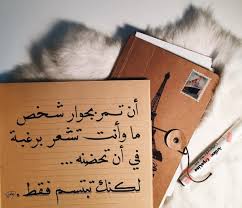 أن تمر بجوار شخص
ما وأنت تشعر برغبة
في أن تحضنه ...
لكنك تبتسم فقط .